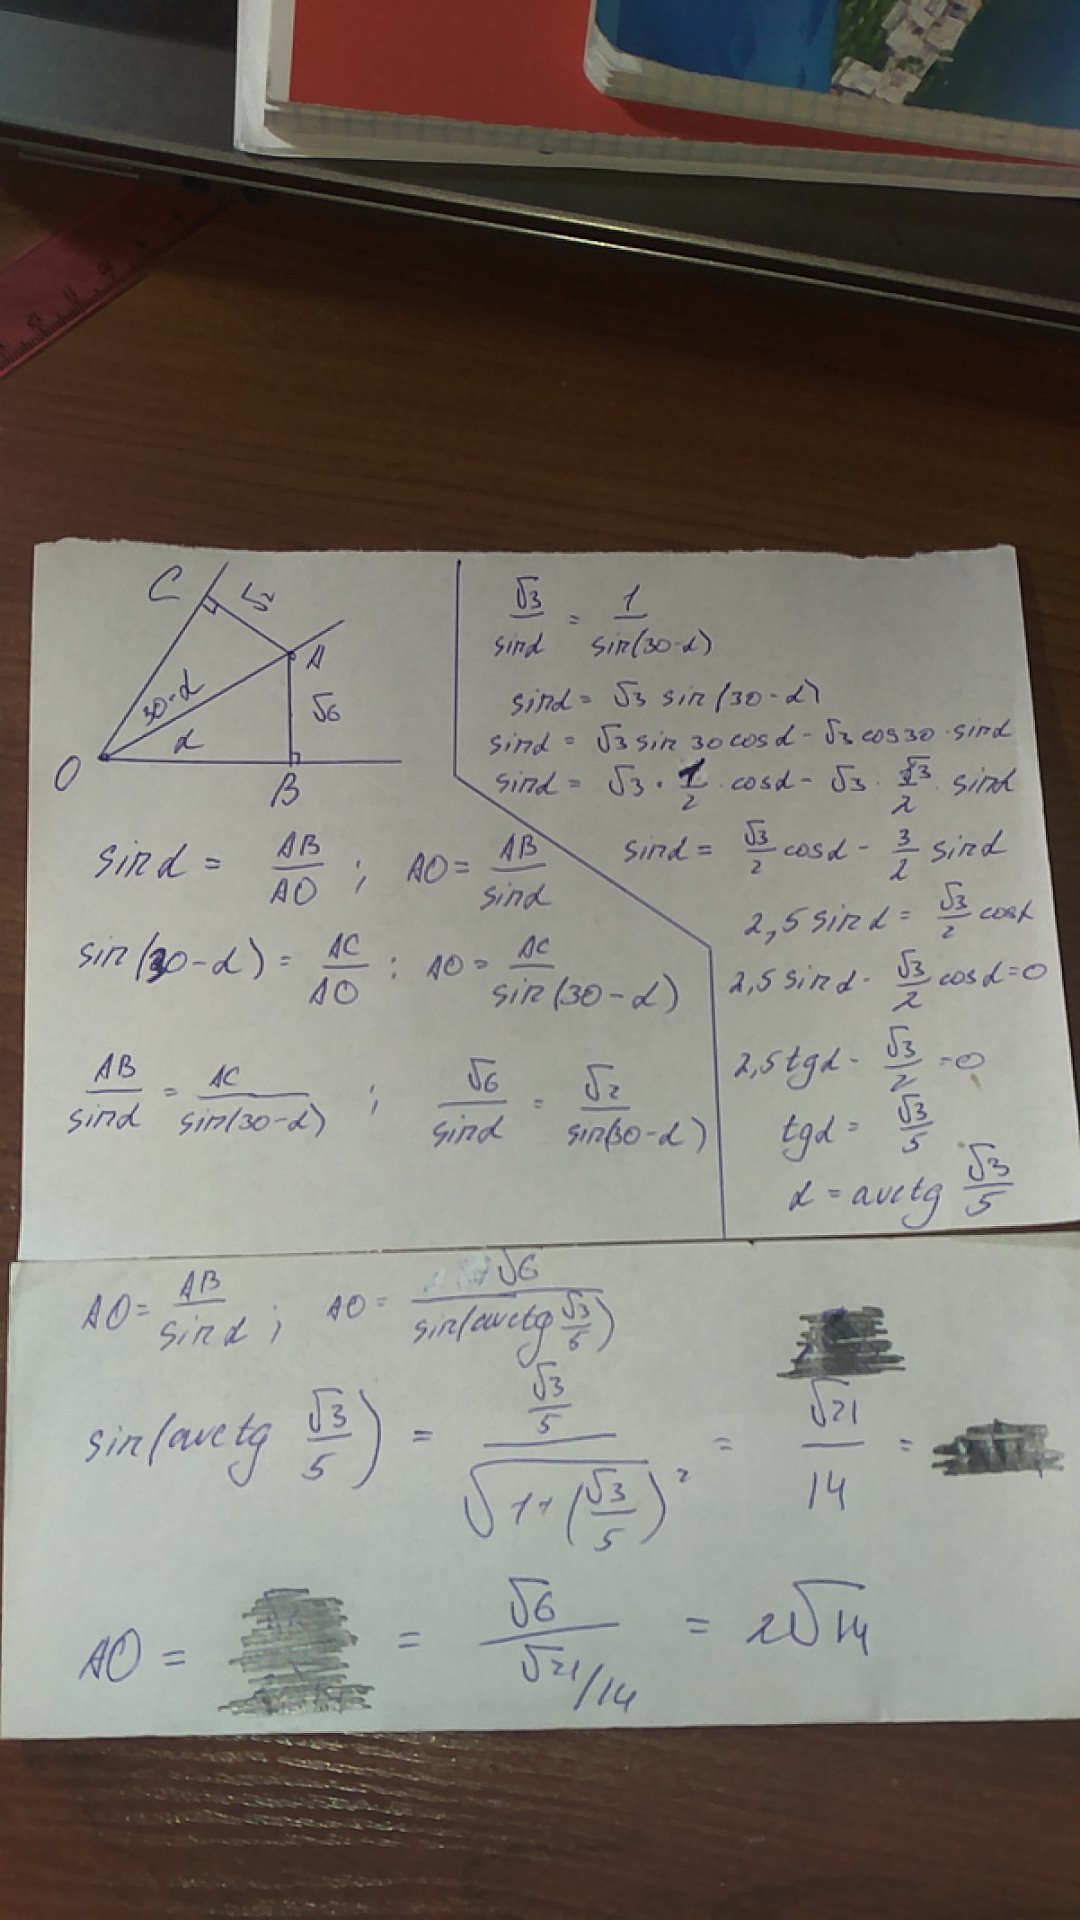 C √2
30-α A
α √6
O B
sinα = AB/AO ; AO = AB/sinα
sin(30-α) = AC/AO ; AO = AC/sin(30-α)
AB/sinα = AC/sin(30-α) ; √6/sinα = √2/sin(30-α)
√3/sinα = 1/sin(30-α)
sinα = √3 sin(30-α)
sinα = √3 sin 30 cosα - √3 cos30 · sinα
sinα = √3 · 1/2 · cosα - √3 · √3/2 · sinα
sinα = √3/2 cosα - 3/2 sinα
2,5 sinα = √3/2 cosα
2,5 sinα - √3/2 cosα = 0
2,5 tgα - √3/2 = 0
tgα = √3/5
α = arctg √3/5
AO = AB/sinα ; AO = √6/sin(arctg √3/5)
sin(arctg √3/5) = (√3/5)/√(1+(√3/5)²) = √21/14 =
AO = = √6/(√21/14) = 2√14